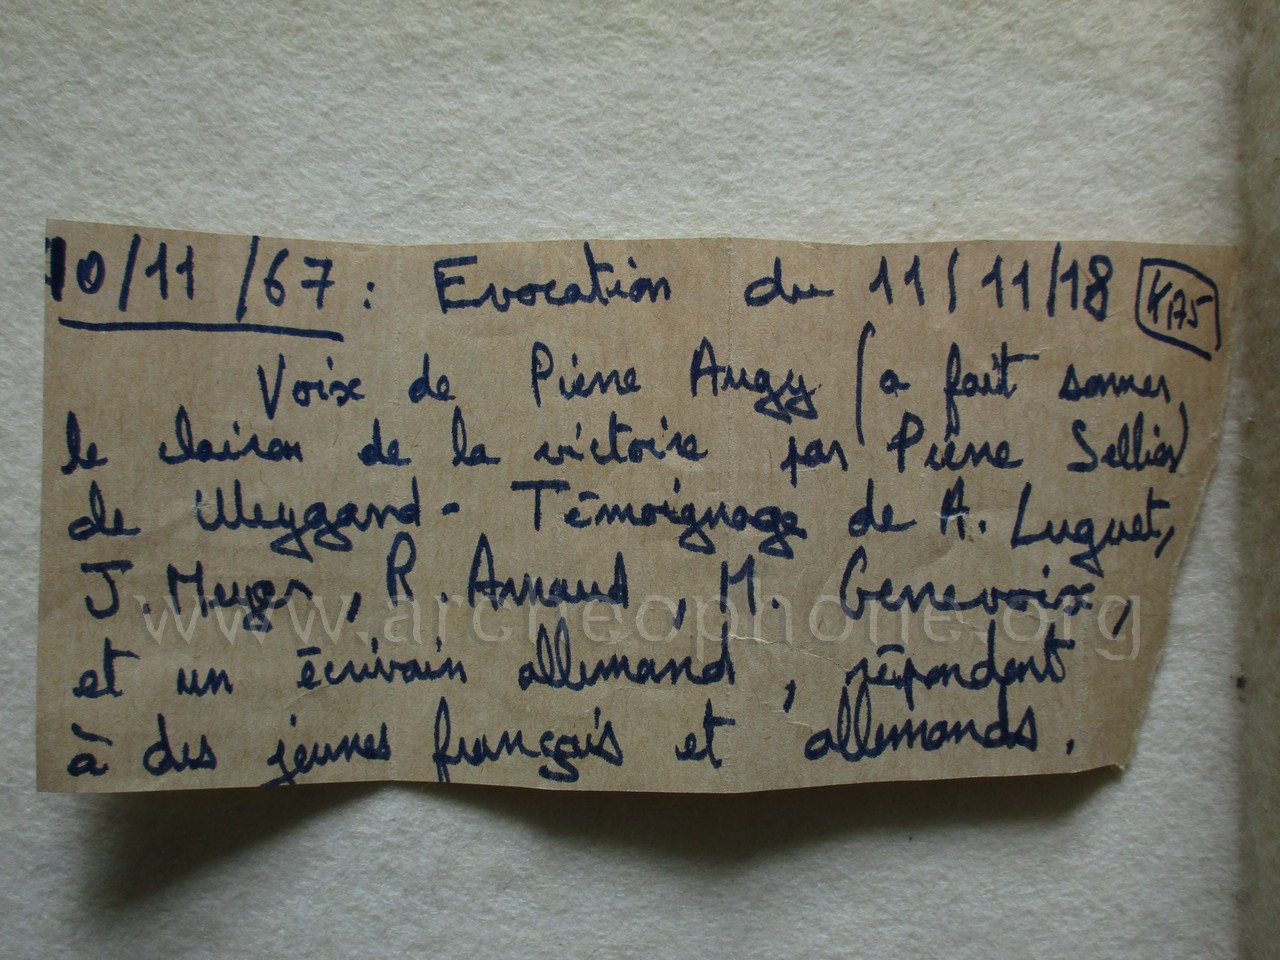 10/11/67 : Evocation du 11/11/18
Voix de Pierre Augy (a fait sonner
le clairon de la victoire par Pierre Sellier)
de Weygand - Témoignage de A. Luguet,
J. Meyer, R. Arnaud, M. Genevoix,
www.archeophone.org
et un écrivain allemand, répondant
à des jeunes français et allemands.